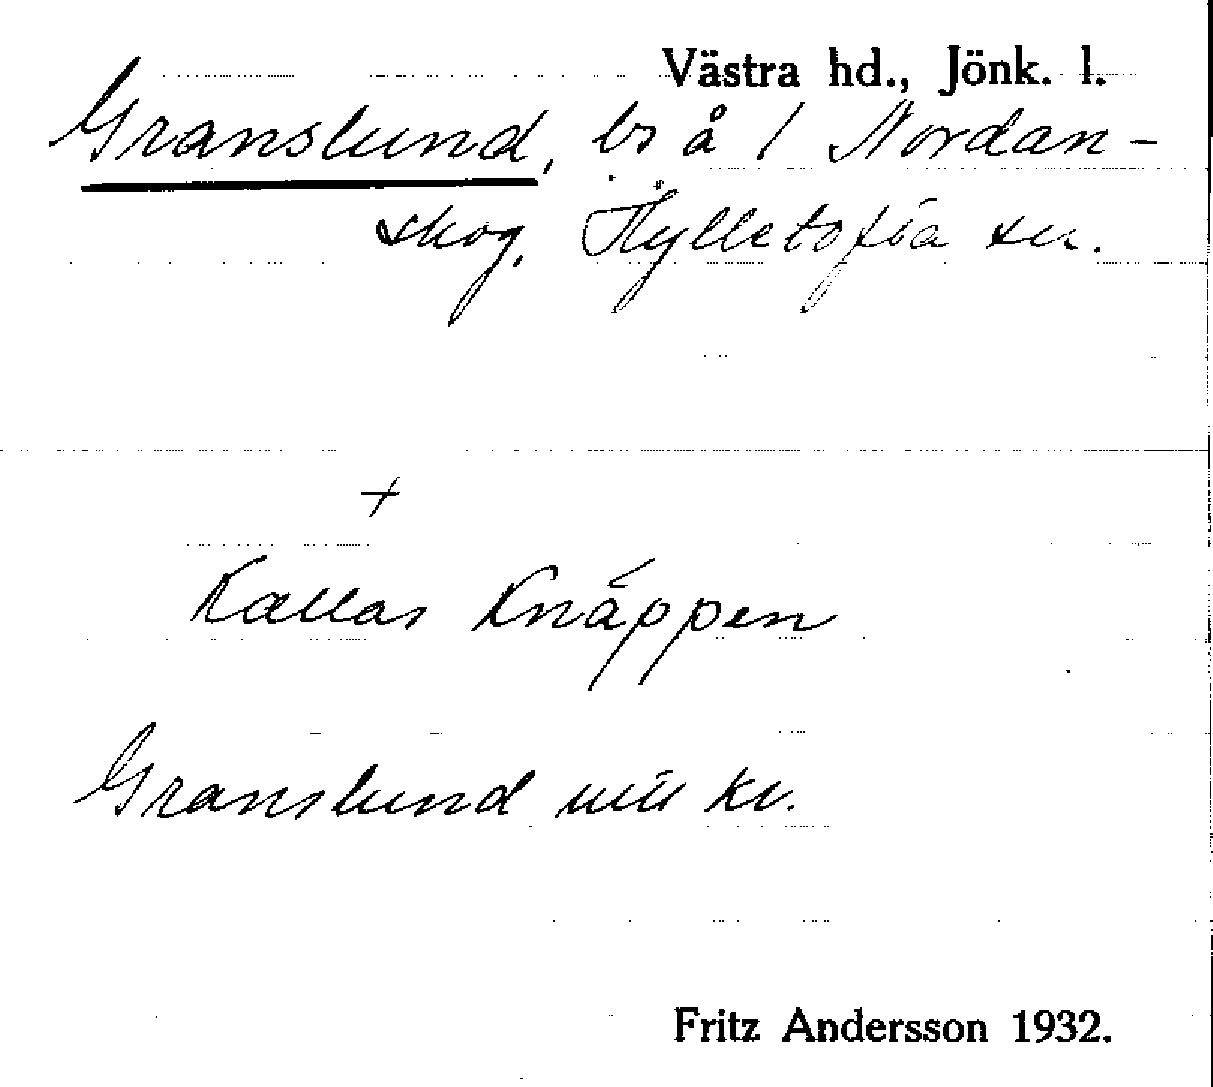 Västra hd., Jönk. l.
Granslund, bs å 1 Nordan-
skog, Hylletofta sn.
+
Kallas Knäppen
Granslund mil kv.
Fritz Andersson 1932.